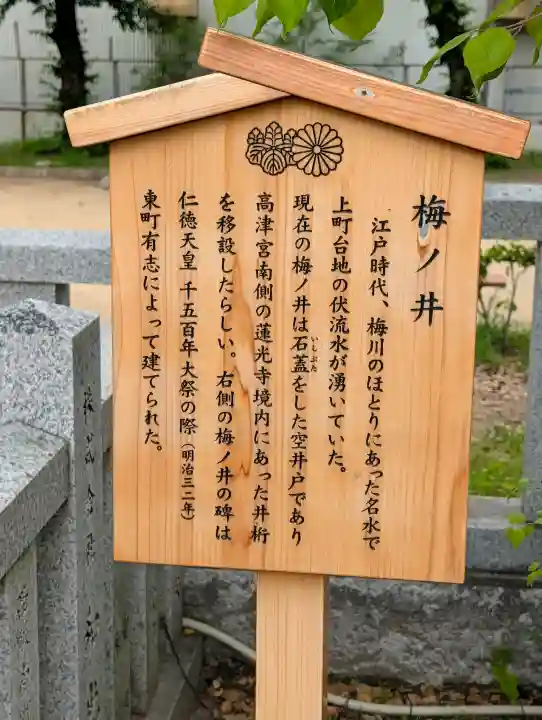 梅ノ井
江戸時代、梅川のほとりにあった名水で
上町台地の伏流水が湧いていた。
現在の梅ノ井は石蓋をした空井戸であり
いしぶた
高津宮南側の蓮光寺境内にあった井桁
を移設したらしい。右側の梅ノ井の碑は
仁徳天皇 千五百年 大祭の際(明治三二年)
東町有志によって建てられた。